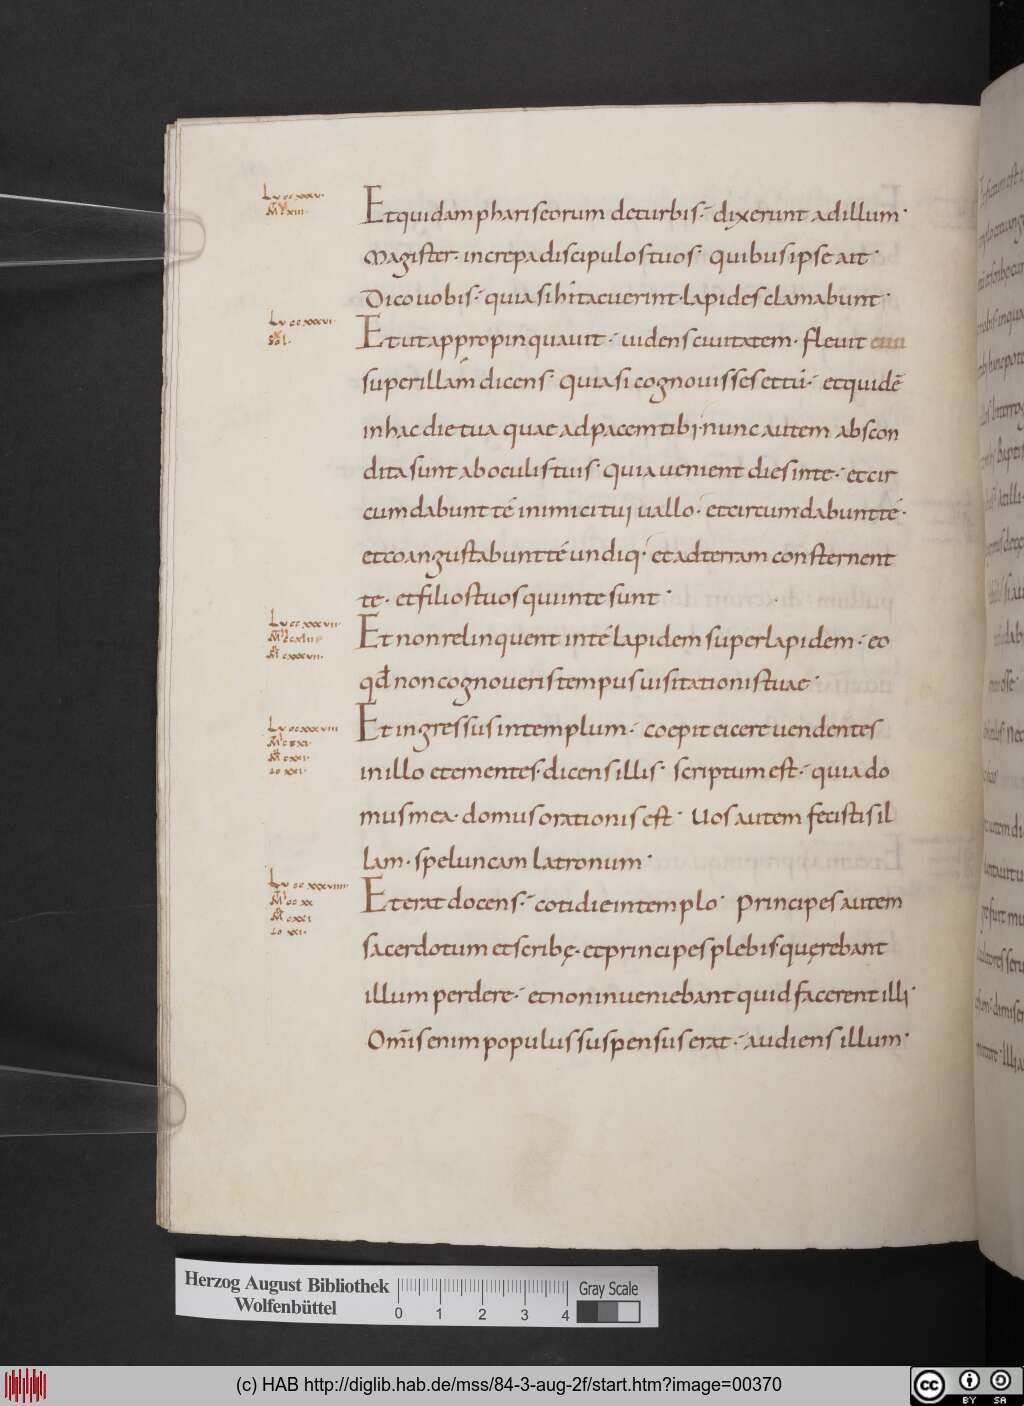 Lu ccxxxv·
Mt ccxiii·
Et quidam phariseorum deturbis· dixerunt adillum·
Magister· increpa discipulos tuos· quibus ipse ait·
Dico uobis· quia si hi tacuerint· lapides clamabunt·
Lu ccxxxvi·
sol·
Et ut appropinquauit· uidens ciuitatem· fleuit
super illam dicens· quia si cognouisses ettū· et quidē
in hac die tua quae ad pacem tibi· nunc autem abscon
dita sunt ab oculis tuis· quia uenient dies inte· et cir
cumdabunt té inimici tui uallo· et circumdabunt té·
et coangustabunt té undiq· et ad terram consternent
te· et filios tuos qui inte sunt·
Lu ccxxxvii·
M cxxxvii·
Et non relinquent inté lapidem super lapidem· eo
qđ non cognoueris tempus uisitationis tuae·
Lu ccxxxviii
Mr cxxi·
Io xxi·
Et ingressus in templum· coepit eicere uendentes
in illo et ementes· dicens illis· scriptum est· quia do
mus mea· domus orationis est· Uos autem fecistis il
lam· speluncam latronum·
Lu ccxxxviiii
Mr cxxi
Io xxi·
Et erat docens· cotidie in templo· Principes autem
sacerdotum et scribę· et principes plebis quęrebant
illum perdere· et non inueniebant quid facerent illi·
Om̄is enim populus suspensus erat· audiens illum·
Herzog August Bibliothek
Wolfenbüttel
0 1 2 3 4
Gray Scale
(c) HAB http://diglib.hab.de/mss/84-3-aug-2f/start.htm?image=00370
cc BY SA